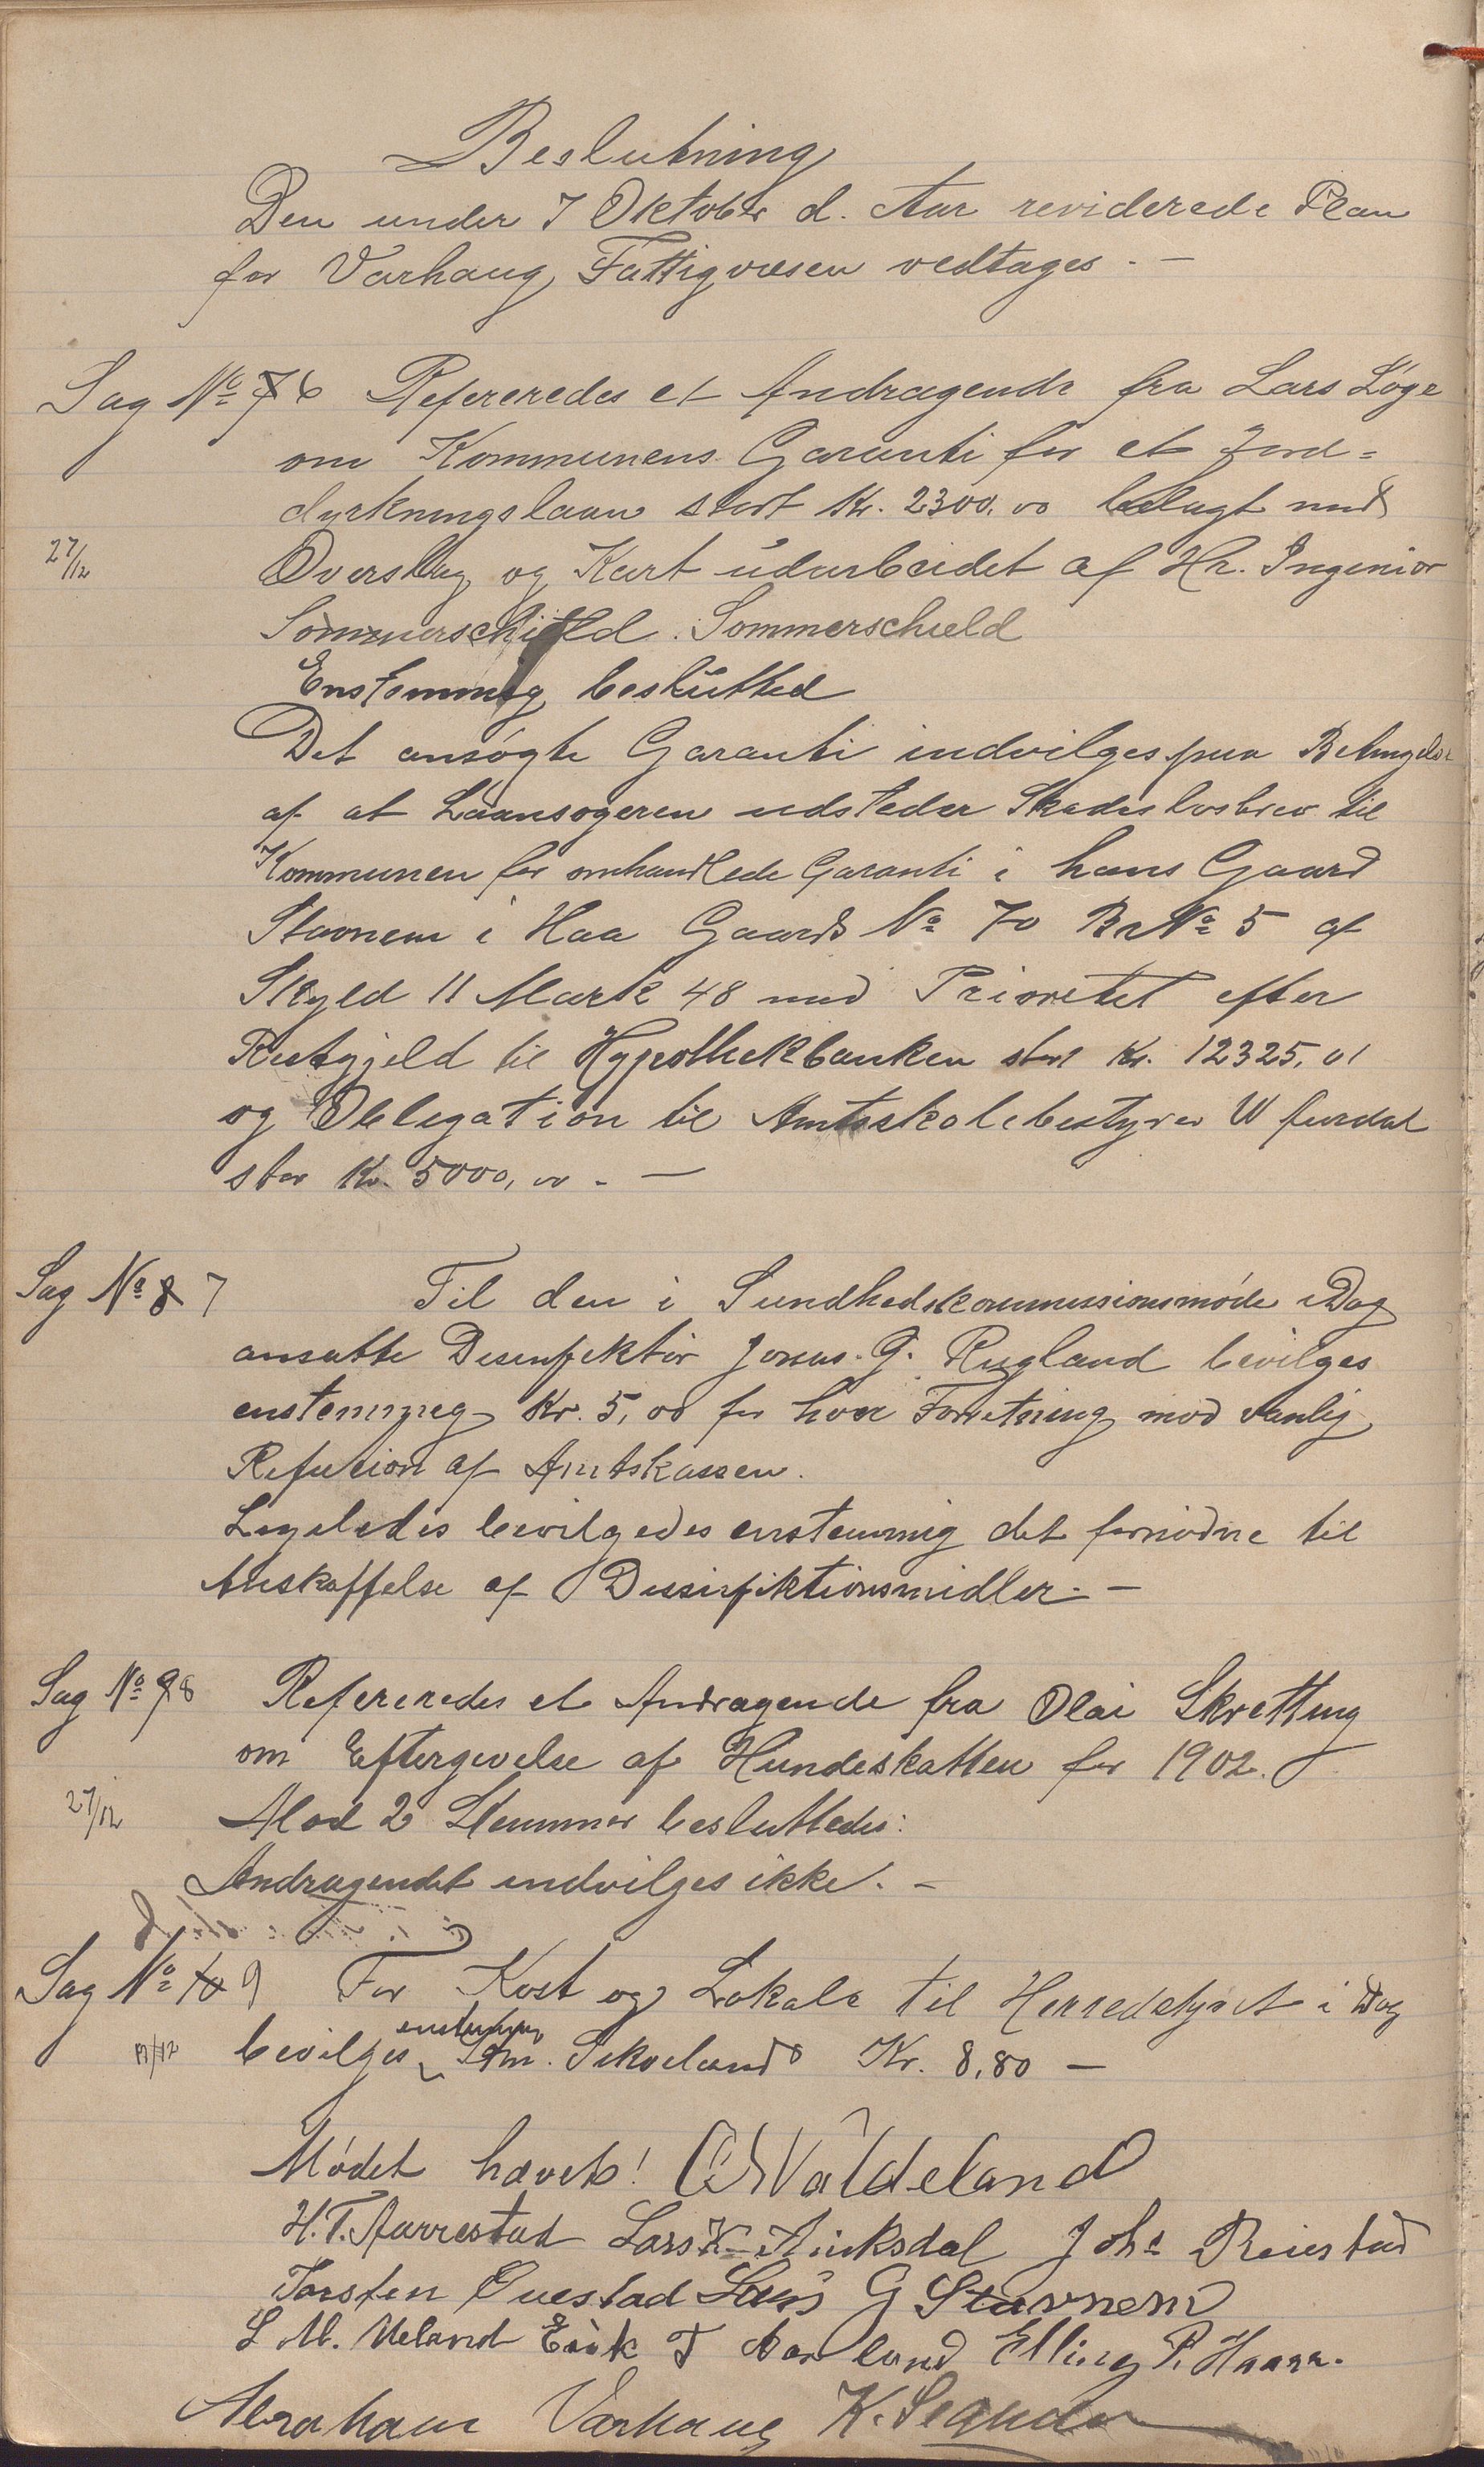 Beslutning
Den under 7 Oktober d. Aar reviderede Plan
for Varhaug Fattigvæsen vedtages. —
Sag No 7 6 Refereredes et Andragende fra Lars Løge
om Kommunens Garanti for et Jord=
dyrkningslaan stort Kr. 2300,00 belagt med
27/12 Overslag og Kart udarbeidet af Hr. Ingeniør
Sommerschield. Sommerschield
Enstemmig beslutted
Det ansøgte Garanti indvilges paa Betingelse
af at Laansøgeren udsteder Skadesløsbrev til
Kommunen for omhandlede Garanti i hans Gaard
Stavnem i Haa Gaards No 70 Br No 5 af
Skyld 11 Mark 48 med Prioritet efter
Restgjeld til Hypothekbanken stor Kr. 12325,01
og Obligation til Amtsskolebestyrer
stor Kr. 5000,00. —
Sag No 8 7 Til den i Sundhedskommissionsmøde i Dag
ansatte Desinfektør Jonas. G. Rugland bevilges
enstemmig Kr. 5,00 for hver Forretning mod vanlig
Refusion af Amtskassen.
Ligeledes bevilgedes enstemmig det fornødne til
Anskaffelse af Dessinfiktionsmidler. —
Sag No 9 8 Refereredes et Andragende fra Olai Skretting
om Eftergivelse af Hundeskatten for 1902.
27/12 Mod 2 Stemmer besluttedes:
Andragendet indvilges ikke. —
Sag No 10 9 For Kost og Lokale til Herredstyret i Dag
enstemmig
bevilges Kr. 8,80 —
Mødet hævet! O W Valdeland
H. T. Aarrestad Lars K Auksdal Johs Reiestad
Torsten Qvestad Lars G Stavnem
L M. Ueland Eirik T Aarland Elling P. Haaar.
Abraham Varhaug K.